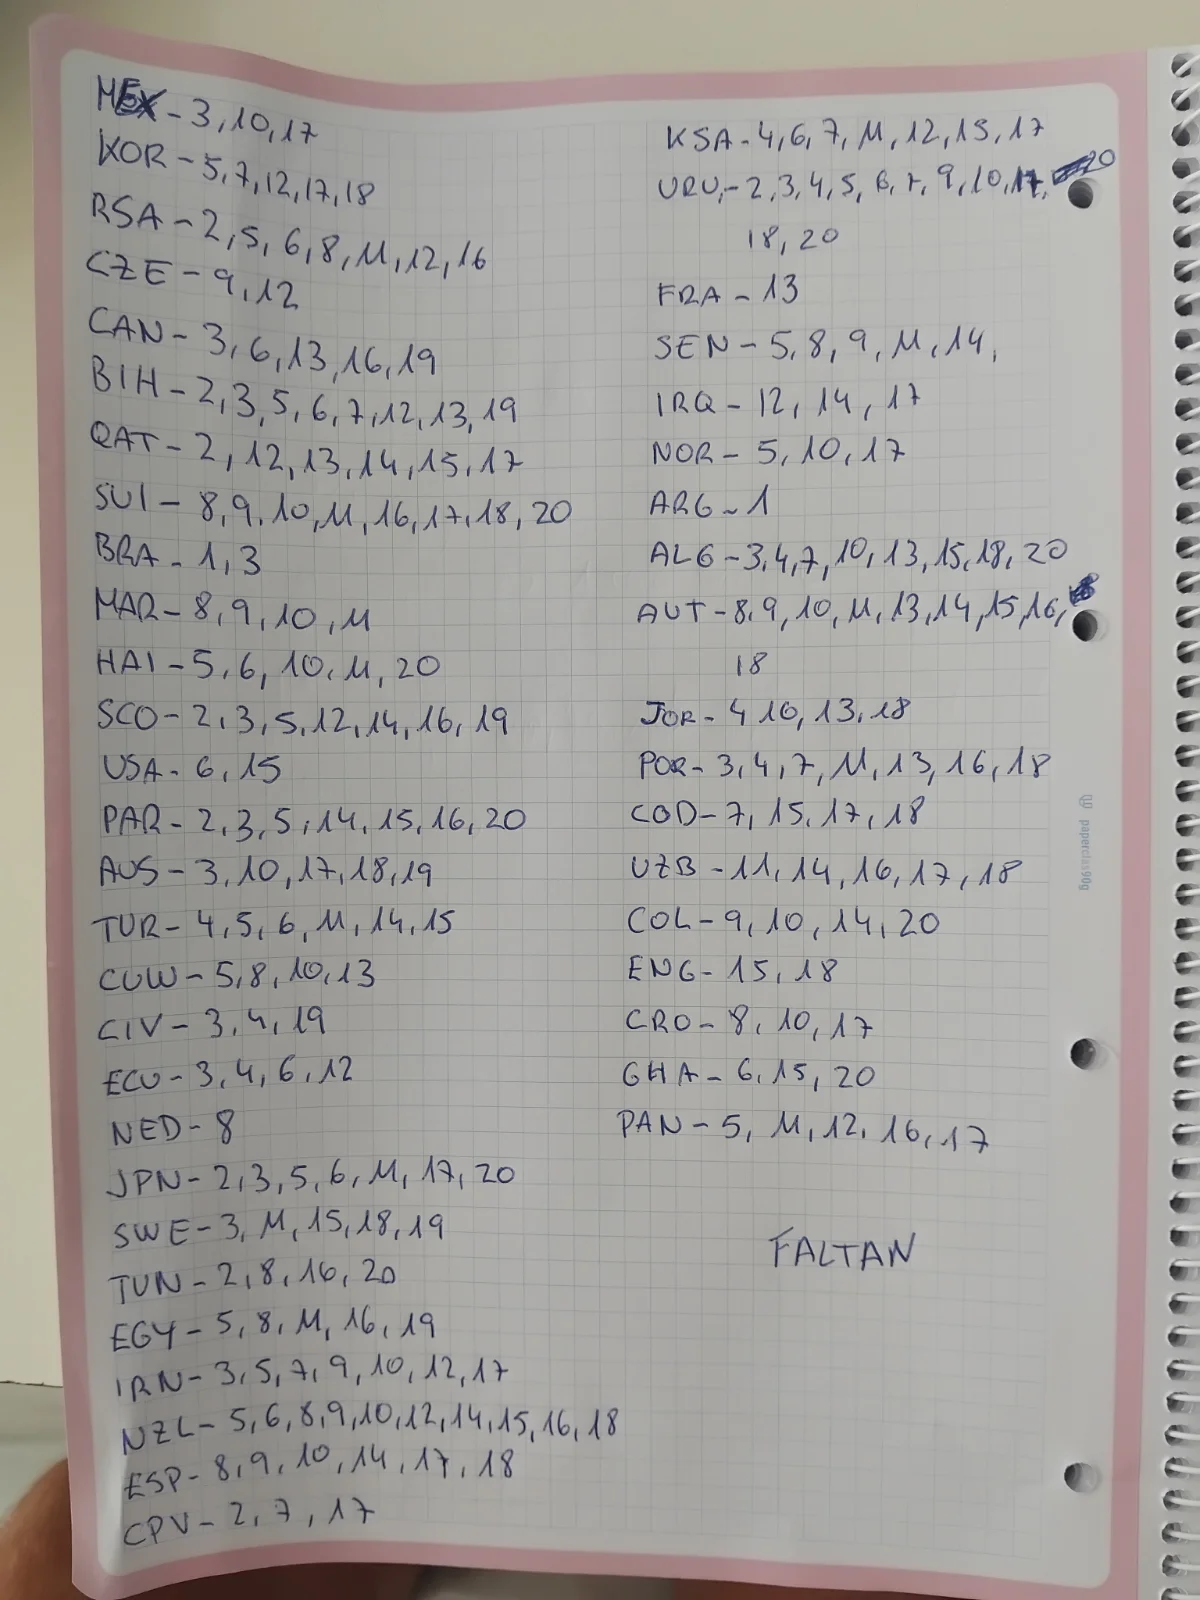 MEX - 3, 10, 17
KOR - 5, 7, 12, 17, 18
RSA - 2, 5, 6, 8, 11, 12, 16
CZE - 9, 12
CAN - 3, 6, 13, 16, 19
BIH - 2, 3, 5, 6, 7, 12, 13, 19
QAT - 2, 12, 13, 14, 15, 17
SUI - 8, 9, 10, 11, 16, 17, 18, 20
BRA - 1, 3
MAR - 8, 9, 10, 11
HAI - 5, 6, 10, 11, 20
SCO - 2, 3, 5, 12, 14, 16, 19
USA - 6, 15
PAR - 2, 3, 5, 14, 15, 16, 20
AUS - 3, 10, 17, 18, 19
TUR - 4, 5, 6, 11, 14, 15
CUW - 5, 8, 10, 13
CIV - 3, 4, 19
ECU - 3, 4, 6, 12
NED - 8
JPN - 2, 3, 5, 6, 11, 17, 20
SWE - 3, 11, 15, 18, 19
TUN - 2, 8, 16, 20
EGY - 5, 8, 11, 16, 19
IRN - 3, 5, 7, 9, 10, 12, 17
NZL - 5, 6, 8, 9, 10, 12, 14, 15, 16, 18
ESP - 8, 9, 10, 14, 17, 18
CPV - 2, 7, 17
KSA - 4, 6, 7, 11, 12, 15, 17
URU - 2, 3, 4, 5, 6, 7, 9, 10, 17, 20
18, 20
FRA - 13
SEN - 5, 8, 9, 11, 14,
IRQ - 12, 14, 17
NOR - 5, 10, 17
ARG - 1
ALG - 3, 4, 7, 10, 13, 15, 18, 20
AUT - 8, 9, 10, 11, 13, 14, 15, 16,
18
JOR - 4 10, 13, 18
POR - 3, 4, 7, 11, 13, 16, 18
COD - 7, 15, 17, 18
UZB - 11, 14, 16, 17, 18
COL - 9, 10, 14, 20
ENG - 15, 18
CRO - 8, 10, 17
GHA - 6, 15, 20
PAN - 5, 11, 12, 16, 17
FALTAN
paperclas90g